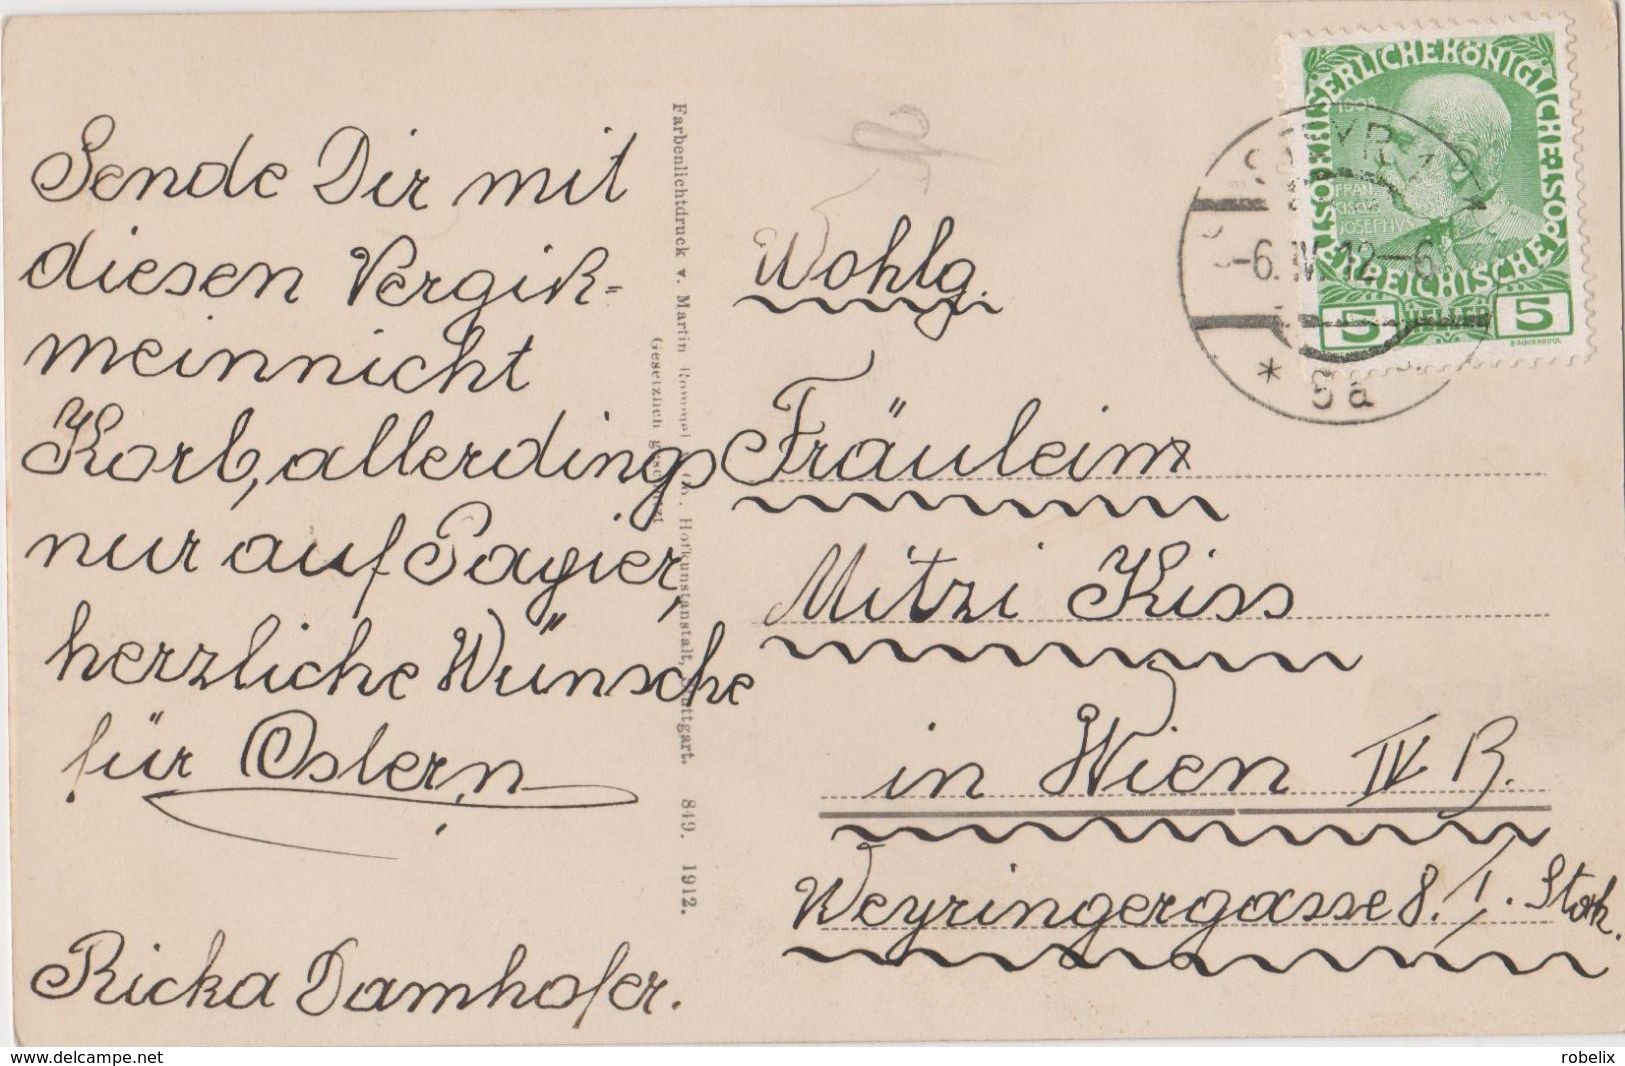 Sende Dir mit
diesen Vergiß-
meinnicht
Korb, allerdings
nur auf Papier,
herzliche Wünsche
für Ostern
Ricka Damhofer.
Farbenlichtdruck v. Martin Rommel & Co., Hofkunstanstalt, Stuttgart. 849. 1912.
Gesetzlich geschützt
Wohlg.
Fräulein
Mitzi Kiss
in Wien IV B.
Weyringergasse 8. I. Stock.
KAISERLICHE KÖNIGLICHE ÖSTERREICHISCHE POST
1908
FRAN
CISCVS
JOSEPHVS I
5 HELLER 5
STEYR 1
-6. IV. 12-6
* 8a
www.delcampe.net
robelix